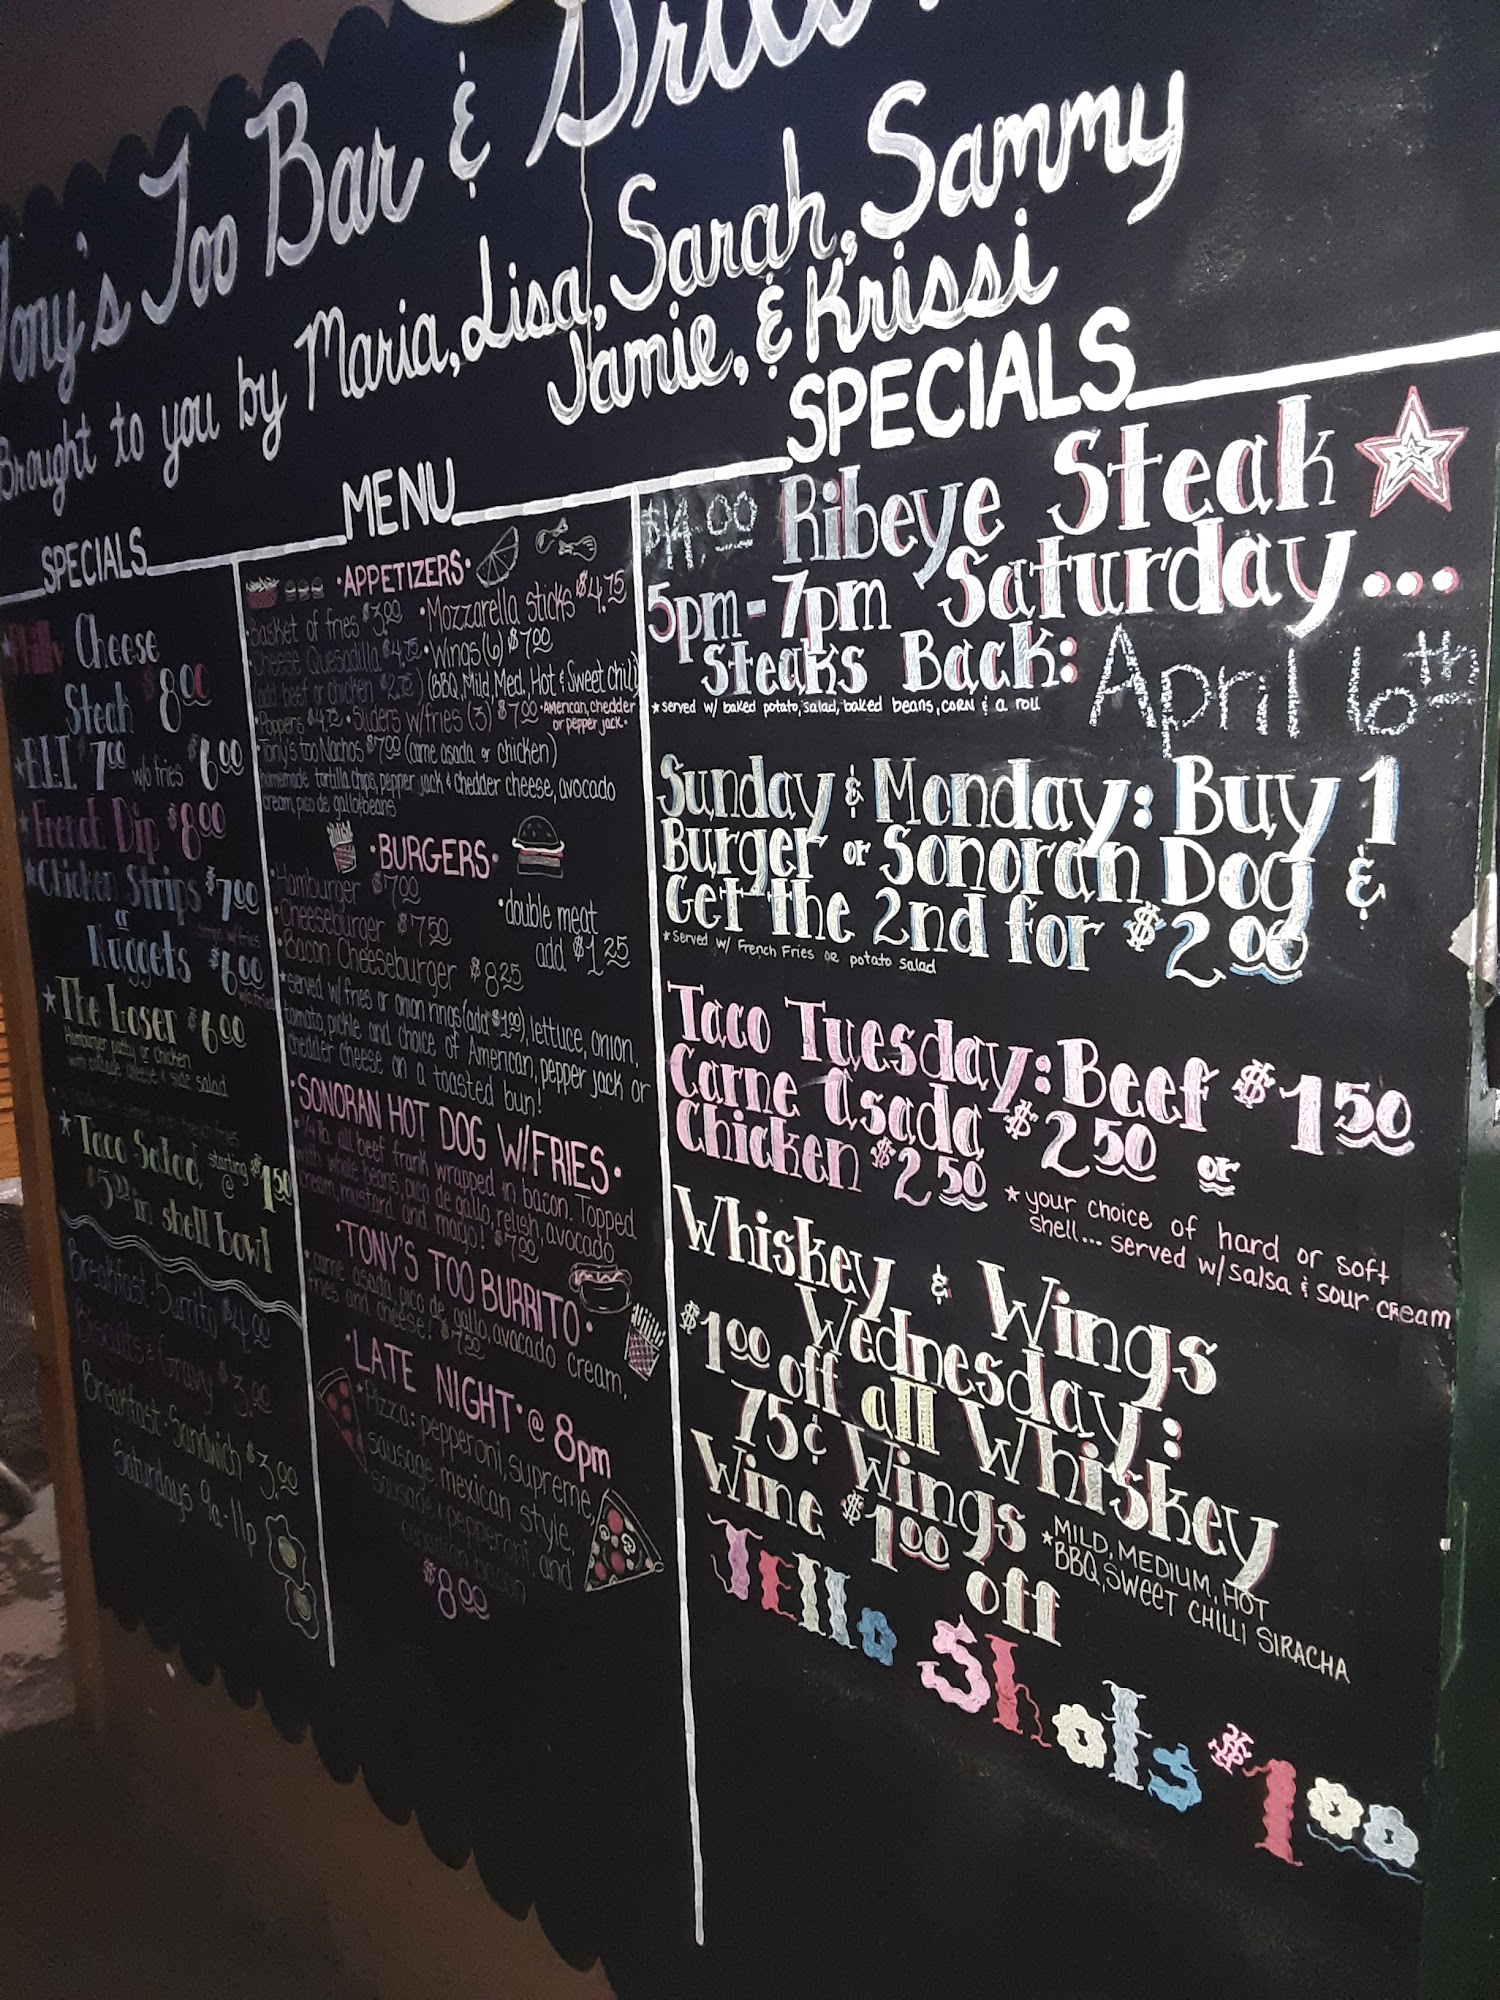 Tony's Too Bar &
Brought to you by Maria, Lisa, Sarah, Sammy
Jamie, & Krissi
SPECIALS
Philly Cheese
Steak $8.00
*BLT $7.00 w/o fries $6.00
*French Dip $8.00
*Chicken Strips $7.00
or strips w/ fries
Nuggets $6.00
w/o fries
*The Loser $6.00
Hamburger patty or chicken
with cottage cheese & side salad
*Taco Salad starting @ $1.50
$5.00 in shell bowl
Breakfast Burrito $4.00
Biscuits & Gravy $3.00
Breakfast Sandwich $3.00
Saturdays 9a-11p
MENU
•APPETIZERS•
•Basket of fries $3.00 •Mozzarella sticks $4.75
•Cheese Quesadilla $4.75 •Wings (6) $7.00
(add beef or chicken $2.75) (BBQ, Mild, Med., Hot & Sweet chili)
•Poppers $4.75 •Sliders w/fries (3) $7.00 •American, chedder
or pepper jack•
•Tony's too Nachos $7.00 (carne asada or chicken)
homemade tortilla chips, pepper jack & chedder cheese, avocado
cream, pico de gallo & beans
•BURGERS•
•Hamburger $7.00
•Cheeseburger $7.50
•Bacon Cheeseburger $8.25
•double meat
add $1.25
*served w/ fries or onion rings (add $1.00), lettuce, onion,
tomato, pickle and choice of American, pepper jack or
chedder cheese on a toasted bun!
•SONORAN HOT DOG W/FRIES•
•1/4 lb. all beef frank wrapped in bacon. Topped
with whole beans, pico de gallo, relish, avocado
cream, mustard and mayo! $7.00
•TONY'S TOO BURRITO•
*carne asada, pico de gallo, avocado cream,
fries and cheese! $7.50
•LATE NIGHT• @ 8pm
*Pizza: pepperoni, supreme,
sausage, mexican style,
sausage & pepperoni, and
canadian bacon
$8.00
SPECIALS
$14.00 Ribeye Steak
5pm - 7pm Saturday...
Steaks Back: April 16th
*served w/ baked potato, salad, baked beans, corn & a roll
Sunday & Monday: Buy 1
Burger or Sonoran Dog &
Get the 2nd for $2.00
*Served w/ French Fries or potato salad
Taco Tuesday: Beef $1.50
Carne Asada $2.50 or
Chicken $2.50
*your choice of hard or soft
shell... served w/ salsa & sour cream
Whiskey & Wings
Wednesday:
$1.00 off all Whiskey
75¢ Wings
*MILD, MEDIUM, HOT
BBQ, SWEET CHILLI SIRACHA
Wine $1.00 off
Jello Shots $1.00